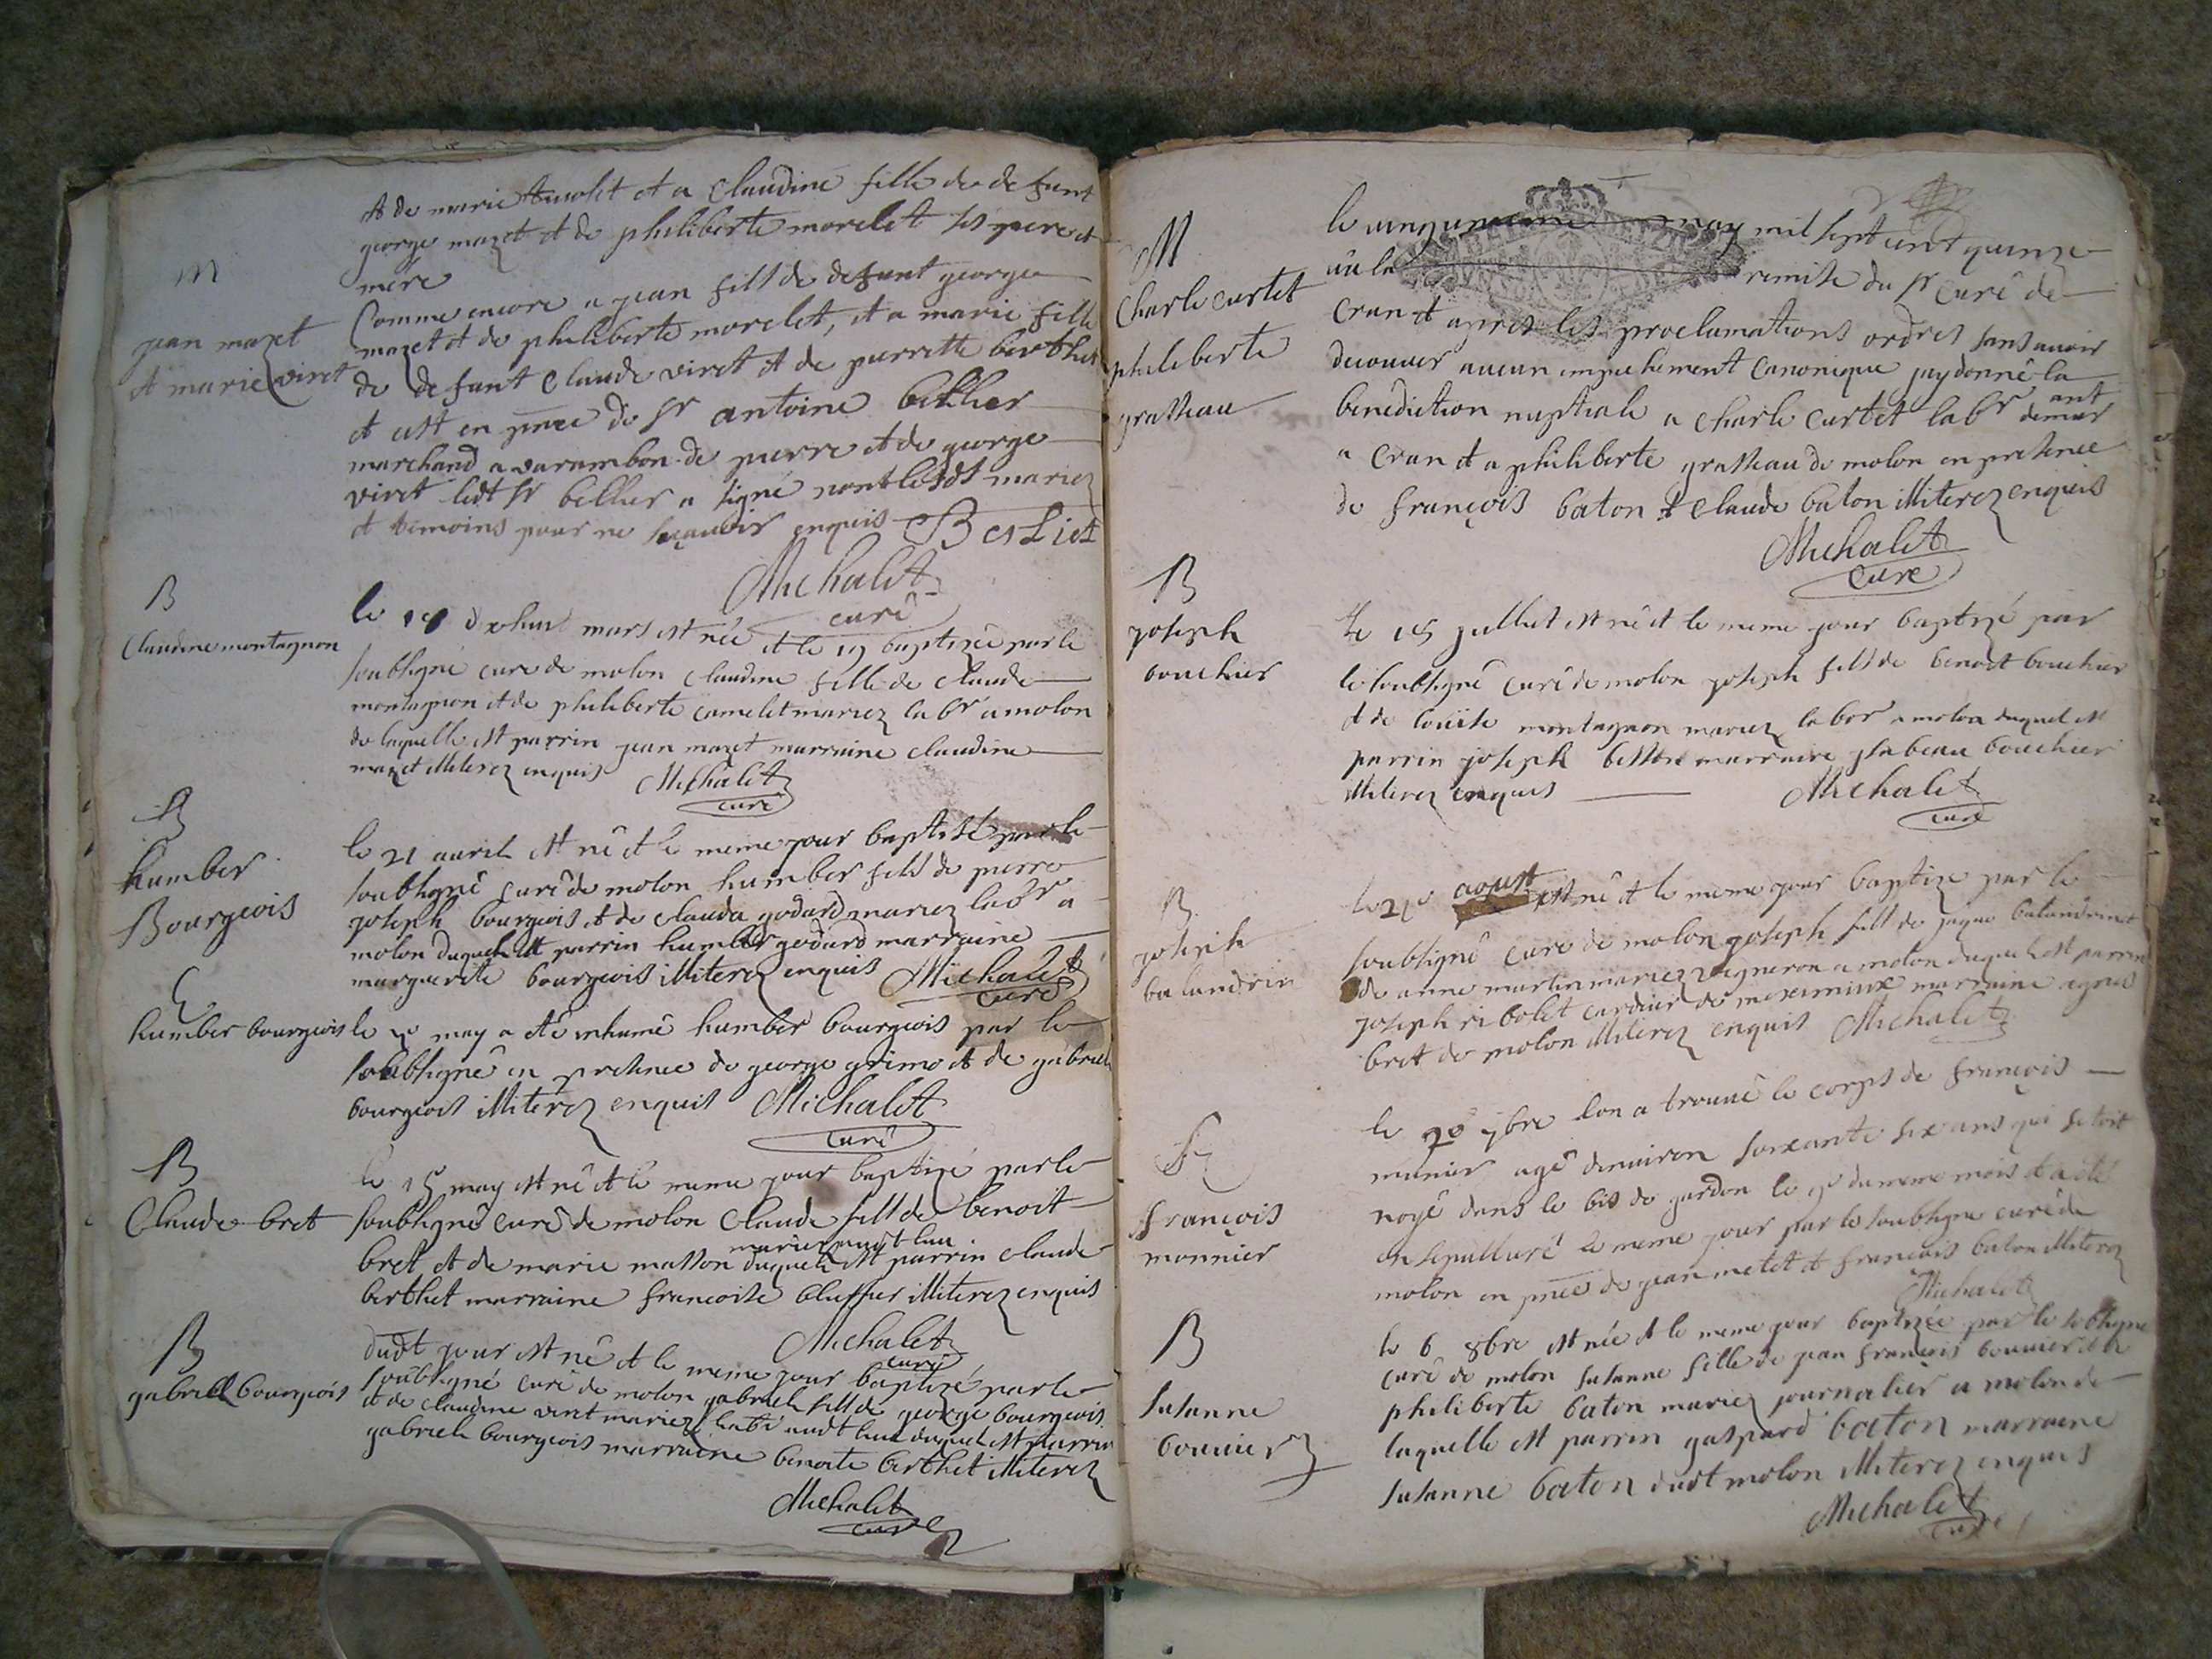 et de marie et a Claudine fille de defunt
george mazet et de philiberte morelet ses pere et
mere
M
jean mazet
et marie viret
Comme encore a jean fils de defunt george
mazet et de philiberte morelet, et a marie fille
de defunt Claude viret et de pierrette berthet
et est en pnce de sr antoine bellier
marchand a varambon de pierre et de george
viret ledt sr bellier a signé non lesdts mariez
et temoins pour ne sçauoir enquis Besliet
Michalet
curé
B
Claudine montagnon
le dixhuit mars est née et le 19 baptizée par le
soubsigné curé de molon claudine fille de claude
montagnon et de philiberte camelet mariez labr a molon
de laquelle est parrin jean mazet marraine claudine
mazet illiterez enquis Michalet
curé
B
humber
Bourgeois
le 21 auril est né et le meme jour baptisé par le
soubsigné curé de molon humber fils de pierre
joseph bourgeois et de clauda godard mariez labr a
molon duquel est parrin humber godard marraine
marguerite bourgeois illiterez enquis Michalet
curé
humber bourgeois
le may a été inhumé humber bourgeois par le
soubsigné en presence de george grimo et de gabriel
bourgeois illiterez enquis Michalet
curé
B
Claude bret
le 15 may est né et le meme jour baptizé par le
soubsigné curé de molon Claude fils de benoit
mariez audt lieu
bret et de marie masson duquel est parrin claude
berthet marraine francoise illiterez enquis
Michalet
curé
B
gabriel bourgeois
dudt jour est né et le meme jour baptizé par le
soubsigné curé de molon gabriel fils de george bourgeois
et de claudine viret mariez labr audt lieu duquel est parrin
gabriel bourgeois marraine benoite berthet illiterez
Michalet
curé
M
Charle curtet
philiberte
grasseau
le may mil sept cent quinze
uû la remise du sr curé de
Cran et apres les proclamations ordres sans auoir
decouuer aucun empechement Canonique jay donné la
benediction nuptiale a Charle Curtet labr demeurant
a Cran et a philiberte grasseau de molon en presence
de françois baton et Claude baton illiterez enquis
Michalet
curé
B
joseph
bouchier
le 15 juillet est né et le meme jour baptizé par
le soubsigné curé de molon joseph fils de benoit bouchier
et de louise montagnon mariez labor a molon duquel est
parrin joseph marraine bouchier
illiterez enquis Michalet
curé
B
joseph
balandrin
le aoust est né et le meme jour baptize par le
soubsigné curé de molon joseph fils de jaque balandrin et
de anne martin mariez vigneron a molon duquel est parrin
joseph ribolet cordier de meximieux marraine
bret de molon illiterez enquis Michalet
françois
monnier
le lon a trouué le corps de françois
munier agé denuiron soixante six ans qui setoit
noyé dans le de gardon le du meme mois et a été
ensepulturé le meme jour par le soubsigné curé de
molon en pnce de jean metet et françois baton illiterez
Michalet
B
susanne
bouuier
le 6 8bre est née et le meme jour baptizée par le sobsigné
curé de molon susanne fille de jean françois bouuier et de
philiberte baton mariez journalier a molon de
laquelle est parrin gaspard baton marraine
susanne baton dudt molon illiterez enquis
Michalet
curé